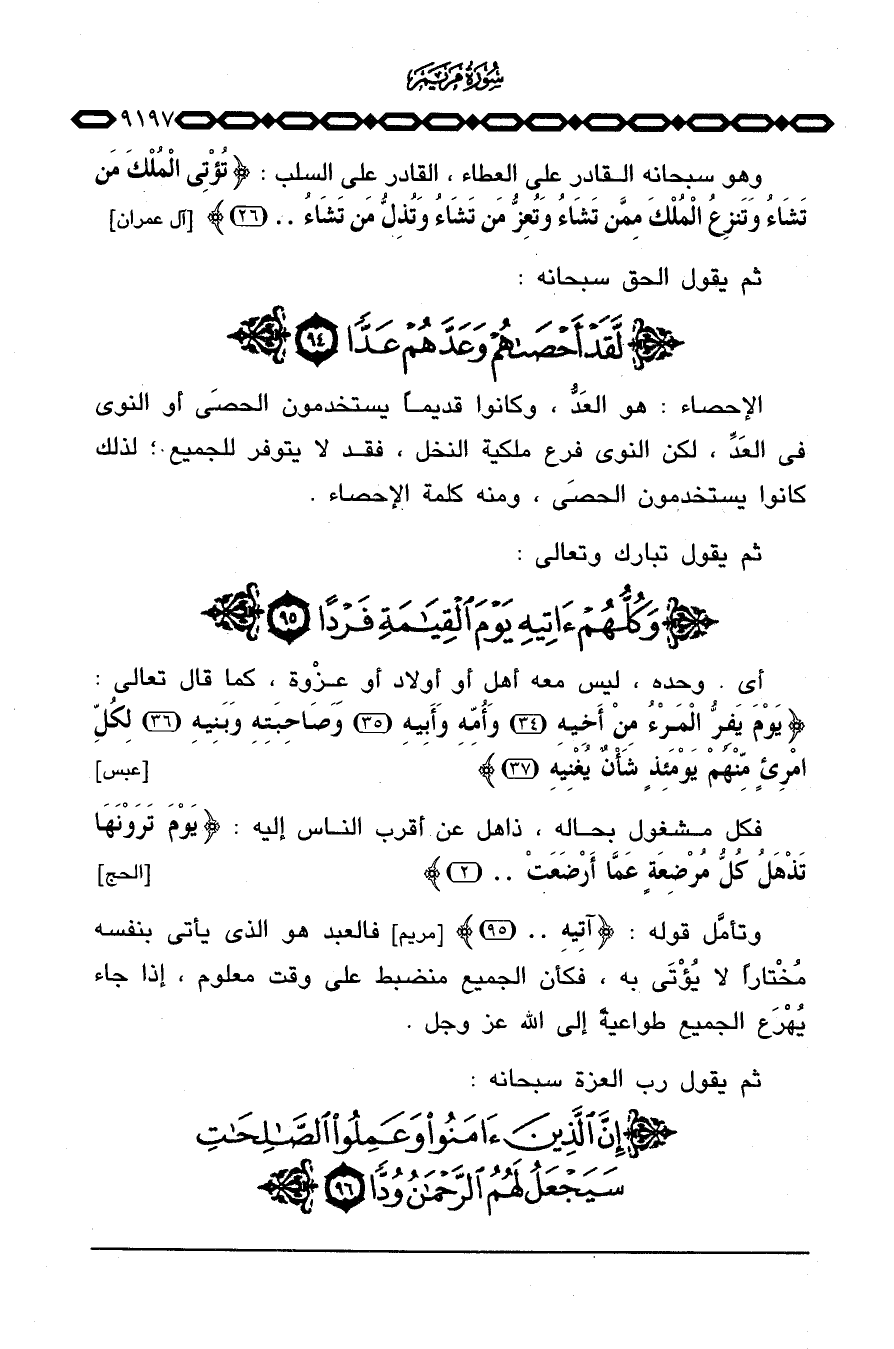 سُورَةُ مَرْيَمَ
٩١٩٧
وهو سبحانه القادر على العطاء ، القادر على السلب : ﴿ تُؤْتِى الْمُلْكَ مَن
تَشَاءُ وَتَنزِعُ الْمُلْكَ مِمَّن تَشَاءُ وَتُعِزُّ مَن تَشَاءُ وَتُذِلُّ مَن تَشَاءُ .. (٢٦) ﴾ [آل عمران]
ثم يقول الحق سبحانه :
﴿ لَّقَدْ أَحْصَىٰهُمْ وَعَدَّهُمْ عَدًّا ٩٤ ﴾
الإحصاء : هو العَدُّ ، وكانوا قديماً يستخدمون الحصَى أو النوى
فى العَدِّ ، لكن النوى فرع ملكية النخل ، فقد لا يتوفر للجميع ؛ لذلك
كانوا يستخدمون الحصَى ، ومنه كلمة الإحصاء .
ثم يقول تبارك وتعالى :
﴿ وَكُلُّهُمْ ءَاتِيهِ يَوْمَ ٱلْقِيَٰمَةِ فَرْدًا ٩٥ ﴾
أى . وحده ، ليس معه أهل أو أولاد أو عزْوة ، كما قال تعالى :
﴿ يَوْمَ يَفِرُّ الْمَرْءُ مِنْ أَخِيهِ (٣٤) وَأُمِّهِ وَأَبِيهِ (٣٥) وَصَاحِبَتِهِ وَبَنِيهِ (٣٦) لِكُلِّ
امْرِئٍ مِّنْهُمْ يَوْمَئِذٍ شَأْنٌ يُغْنِيهِ (٣٧) ﴾ [عبس]
فكل مشغول بحاله ، ذاهل عن أقرب الناس إليه : ﴿ يَوْمَ تَرَوْنَهَا
تَذْهَلُ كُلُّ مُرْضِعَةٍ عَمَّا أَرْضَعَتْ .. (٢) ﴾ [الحج]
وتأمَّل قوله : ﴿ آتِيهِ .. (٩٥) ﴾ [مريم] فالعبد هو الذى يأتى بنفسه
مُخْتاراً لا يُؤْتَى به ، فكأن الجميع منضبط على وقت معلوم ، إذا جاء
يُهْرَع الجميع طواعيةً إلى الله عز وجل .
ثم يقول رب العزة سبحانه :
﴿ إِنَّ ٱلَّذِينَ ءَامَنُوا۟ وَعَمِلُوا۟ ٱلصَّٰلِحَٰتِ
سَيَجْعَلُ لَهُمُ ٱلرَّحْمَٰنُ وُدًّا ٩٦ ﴾